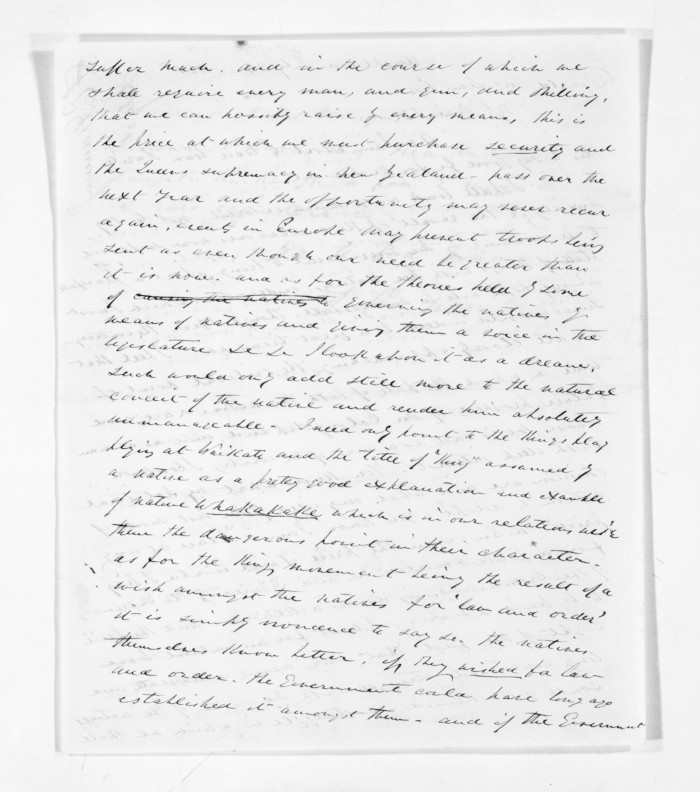 suffer much. and in the course of which we
shall require every man, and gun, and shilling,
that we can possibly raise by every means, this is
the price at which we must purchase security and
the Queens supremacy in New Zealand - pass over the
next year and the opportunity may never recur
again, events in Europe may prevent troops being
sent us even though our need be greater than
it is now. and as for the theories held by some
of causing the natives to governing the natives by
means of natives and giving them a voice in the
legislature &c &c I look upon it as a dream,
such would only add still more to the natural
conceit of the native and render him absolutely
unmanageable - I need only point to the Kings flag
flying at Waikato and the title of "King" assumed by
a native as a pretty good explanation and example
of native Whakakake which is in our relations with
them the dangerous point in their character -
as for the Kings movement being the result of a
wish amongst the natives for 'law and order'
it is simply noncence to say so. the natives
themselves know better. if they wished for law
and order. the Government could have long ago
established it amongst them - and if the Government